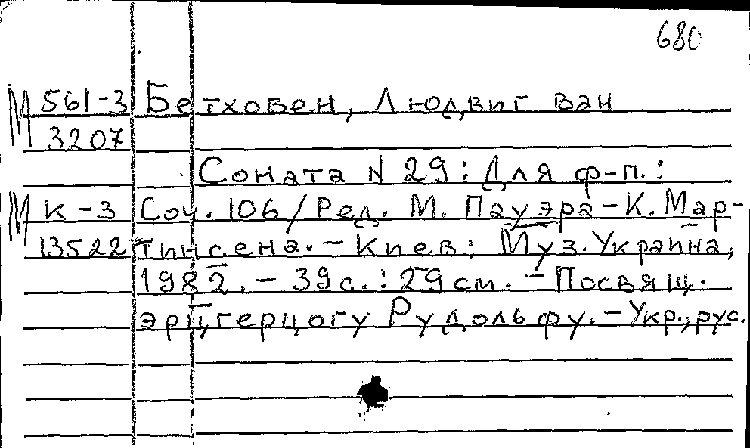 680
М 561-3 Бетховен, Людвиг ван
3207
Соната N 29: Для ф-п.:
М К-3 Соч. 106/Ред. М. Пауэра-К. Мар-
13522 тинсена. - Киев: Муз. Украина,
1982. - 39с.: 29см. - Посвящ.
эрцгерцогу Рудольфу. - Укр., рус.